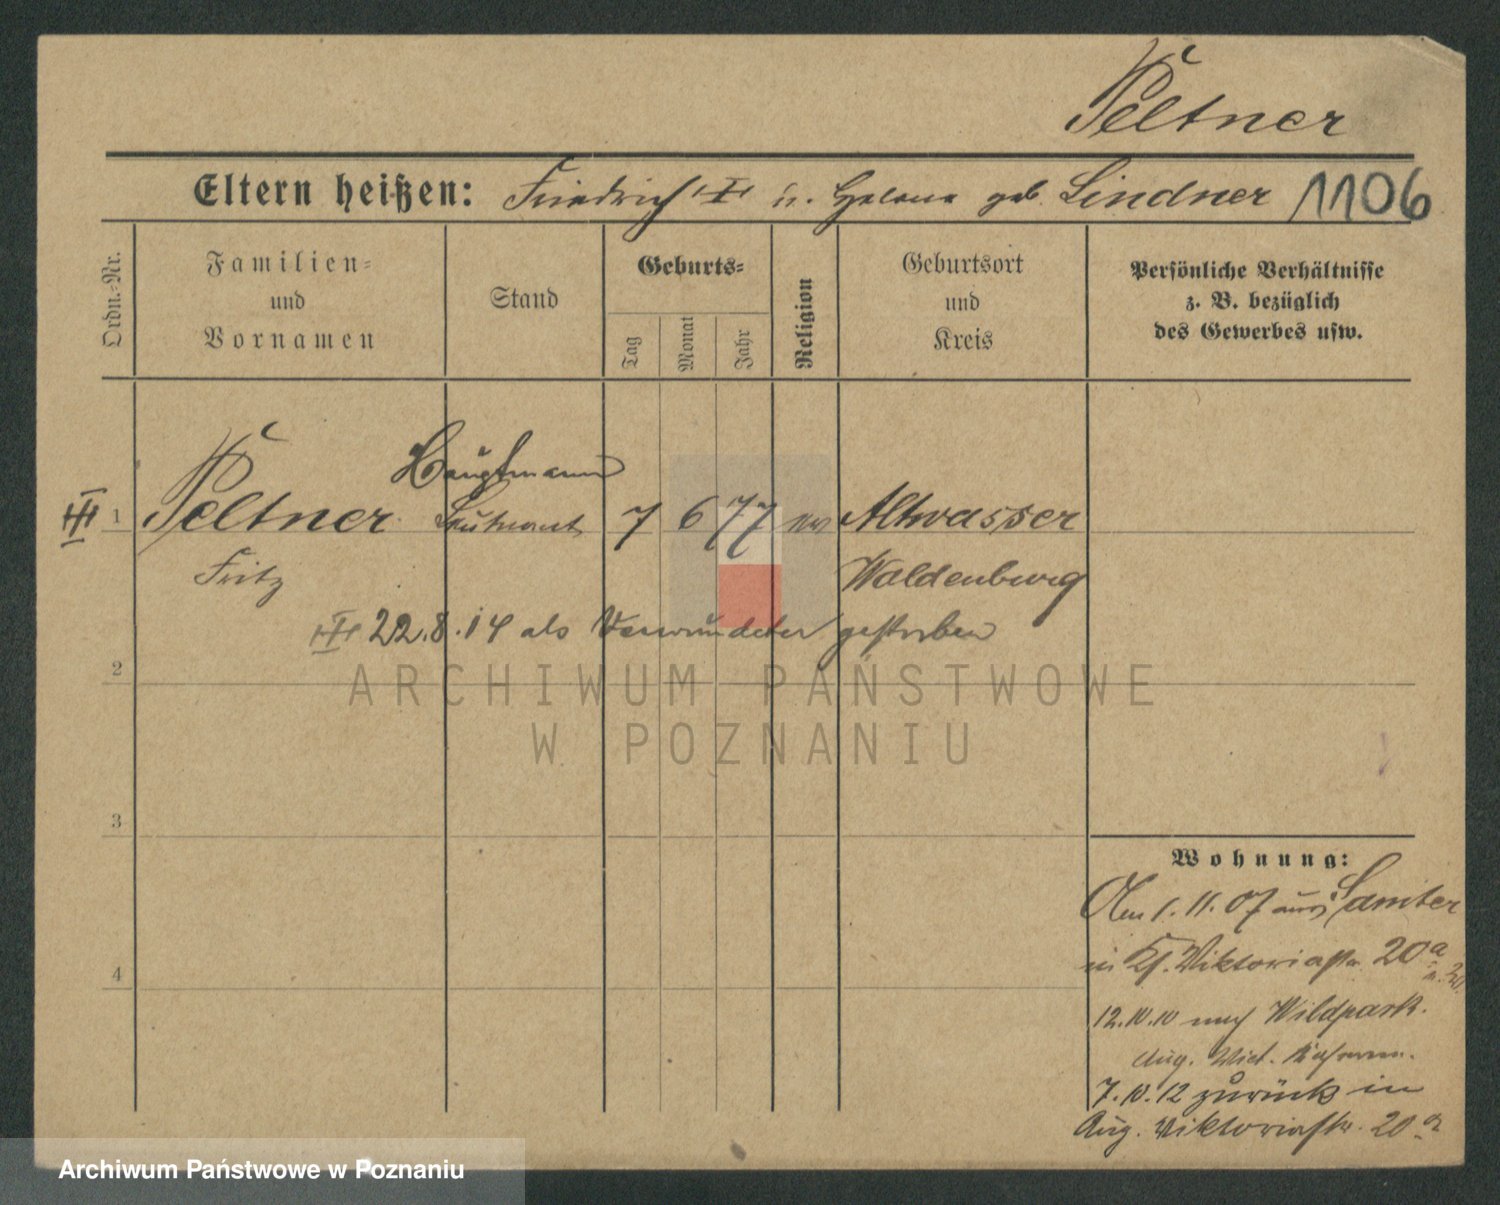 Peltner
Eltern heißen: Friedrich ⵜ u. Helene geb. Lindner 1106
Ordn.-Nr.
Familien-
und
Vornamen
Stand
Geburts-
Tag
Monat
Jahr
Religion
Geburtsort
und
Kreis
Persönliche Verhältnisse
z. B. bezüglich
des Gewerbes usw.
Hauptmann
1 Peltner Leutnant 7 6 77 ev Altwasser
Fritz Waldenburg
22.8.14 als Verwundeter gestorben
2
ARCHIWUM PAŃSTWOWE
W POZNANIU
3
Wohnung:
Am 1.11.07 aus Samter
in Viktoriastr. 20a
4
12.10.10 nach Wildpark.
Aug. Vict.
7.10.12 zurück in
Aug. Viktoriastr. 20a
Archiwum Państwowe w Poznaniu